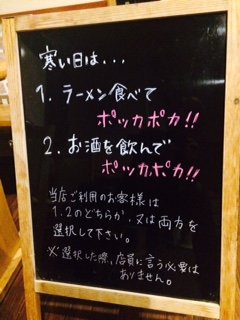 寒い日は...
1. ラーメン食べて
ポッカポカ!!
2. お酒を飲んで
ポッカポカ!!
当店ご利用のお客様は
1.2のどちらか、又は両方を
選択して下さい。
※選択した際、店員に言う必要は
ありません。